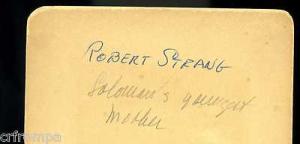 ROBERT STRANG
Solomon's youngest
Mother
crfrwmpa